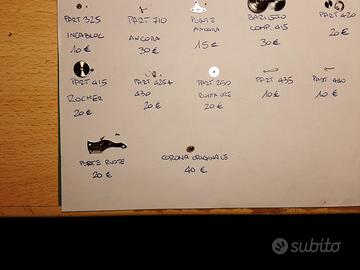 PART 325
PART 710
PONTE
BARILETO
PART 420
INCABLOC
ANCORA
ANCORA
COMP. 415
20 €
10 €
30 €
15 €
30 €
PART 415
PART 425+
PART 250
PART 435
430
ROCHER
RUOTA ORE
10 €
10 €
20 €
20 €
20 €
PONTE RUOTE
CORONA ORIGINALE
20 €
40 €
subito